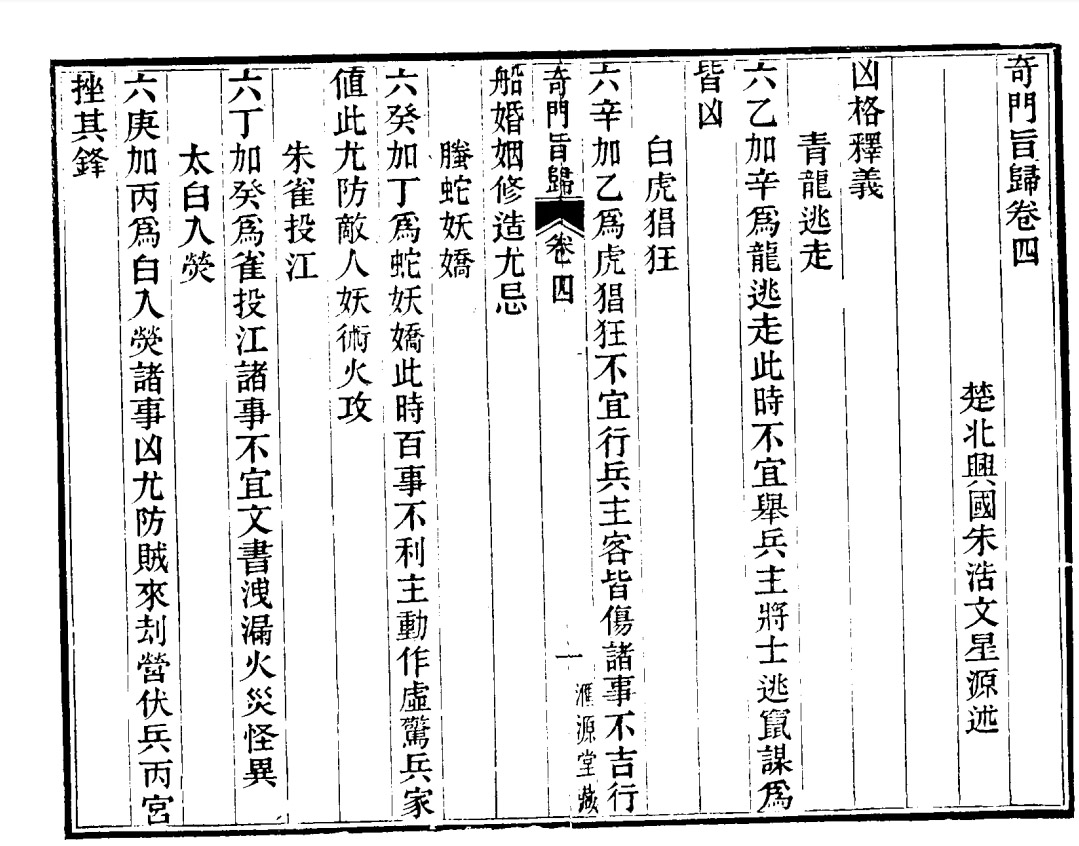 奇門旨歸卷四
楚北興國朱浩文星源述
凶格釋義
青龍逃走
六乙加辛爲龍逃走此時不宜舉兵主將士逃竄謀爲
皆凶
白虎猖狂
六辛加乙爲虎猖狂不宜行兵主客皆傷諸事不吉行
奇門旨歸 卷四 一 滙源堂藏
船婚姻修造尤忌
螣蛇妖嬌
六癸加丁爲蛇妖嬌此時百事不利主動作虛驚兵家
値此尤防敵人妖術火攻
朱雀投江
六丁加癸爲雀投江諸事不宜文書洩漏火災怪異
太白入熒
六庚加丙爲白入熒諸事凶尤防賊來刦營伏兵丙宮
挫其鋒